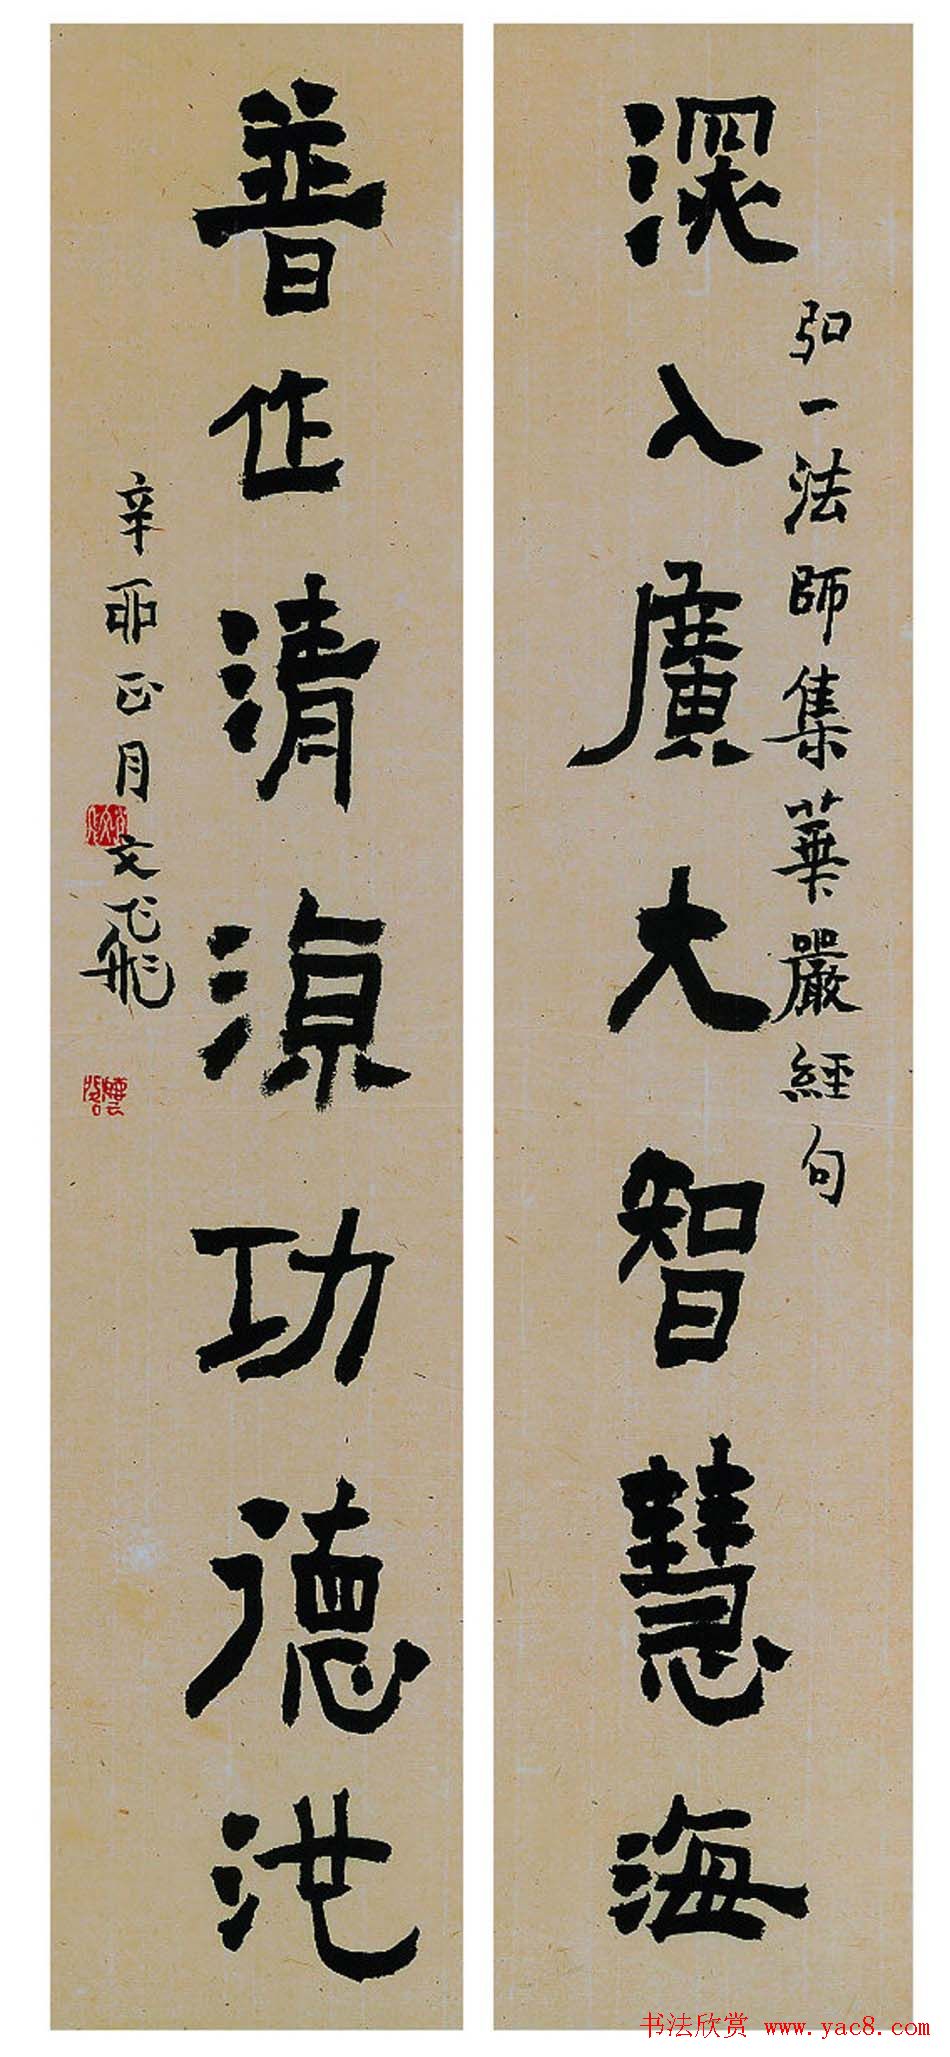 深入廣大智慧海
弘一法師集華嚴經句
普作清涼功德池
辛丣正月文飛
书法欣赏 www.yac8.com